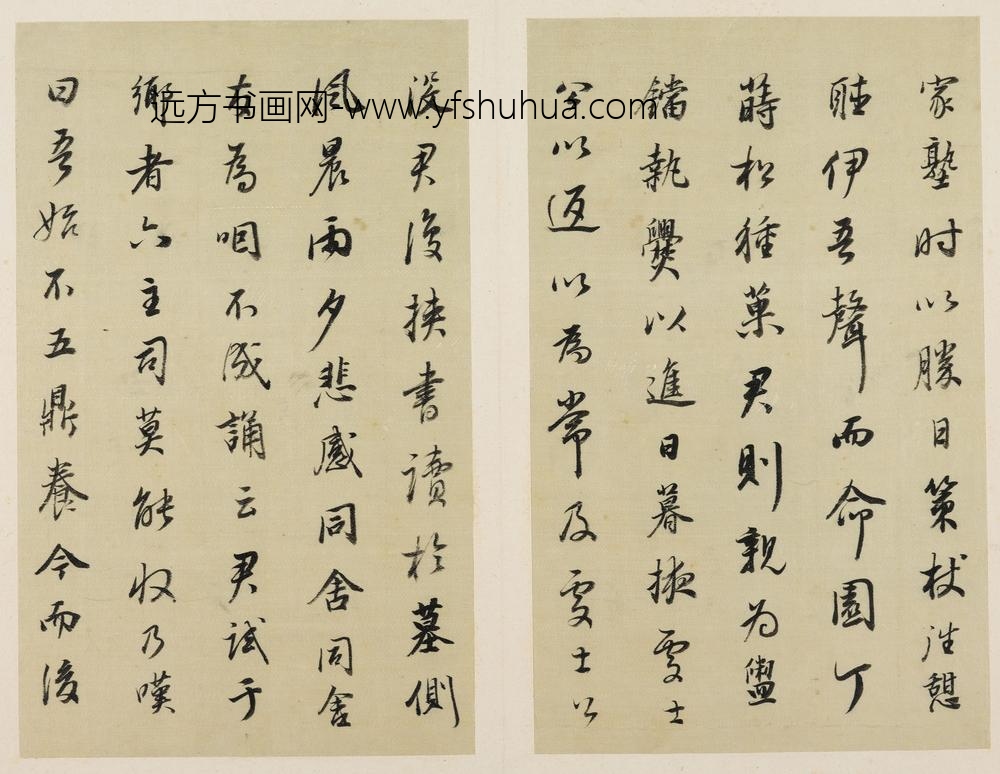 家塾时以勝日策杖往憩
聴伊吾聲而命園丁
蒔松種菓君則親为盥
鐺執爨以進日暮掖處士
公以返以為常及處士公
没君復挟書讀於墓側
風晨雨夕悲感同舍同舍
友為咽不成誦云君試于
鄉者六主司莫能收乃嘆
曰吾始不五鼎養今而後
远方书画网-www.yfshuhua.com